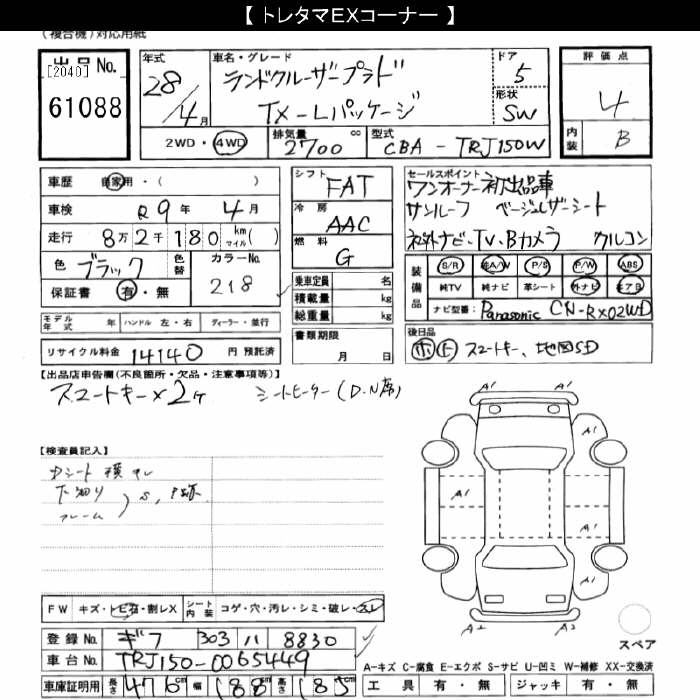 【 トレタマEXコーナー 】
(複合機)対応用紙
出品 No. [2040] 61088
年式 28/4月
車名・グレード ランドクルーザープラド TX-Lパッケージ
ドア 5
形状 SW
評価点 4
内装 B
2WD・4WD
排気量 2700 cc
型式 CBA - TRJ150W
車歴 自家用・( )
車検 R9年 4月
走行 8万2千180 km マイル( )
色 ブラック 色替
カラーNo. 218
保証書 有・無
シフト FAT
冷房 AAC
燃料 G
乗車定員 名
積載量 kg
総重量 kg
セールスポイント
ワンオーナー初出品車
サンルーフ ベージュレザーシート
社外ナビ・TV・Bカメラ クルコン
装備品 S/R A/W P/S P/W ABS
純TV 純ナビ 革シート 外ナビ エアB
ナビ型番: Panasonic CN-RX02WD
モデル年式 年 ハンドル 左・右 ディーラー・並行
リサイクル料金 14140 円 預託済
書類期限 月 日
後日品
ホ ト スマートキー、地図SD
【出品店申告欄(不良箇所・欠品・注意事項等)】
スマートキー×2ヶ シートヒーター(D.N席)
【検査員記入】
シート
下廻り
フレーム
S,
FW キズ・トビ石・割レX
シート内装 コゲ・穴・汚レ・シミ・破レ・スレ
登録No. ギフ 303 ハ 8830
車台No. TRJ150-0065449
車庫証明用 長さ 476cm 幅 188cm 高さ 185cm
A1 A1
A1
A1 A1
A1
A2 A1
スペア
A-キズ C-腐食 E-エクボ S-サビ U-凹ミ W-補修 XX-交換済
工具 有・無 ジャッキ 有・無